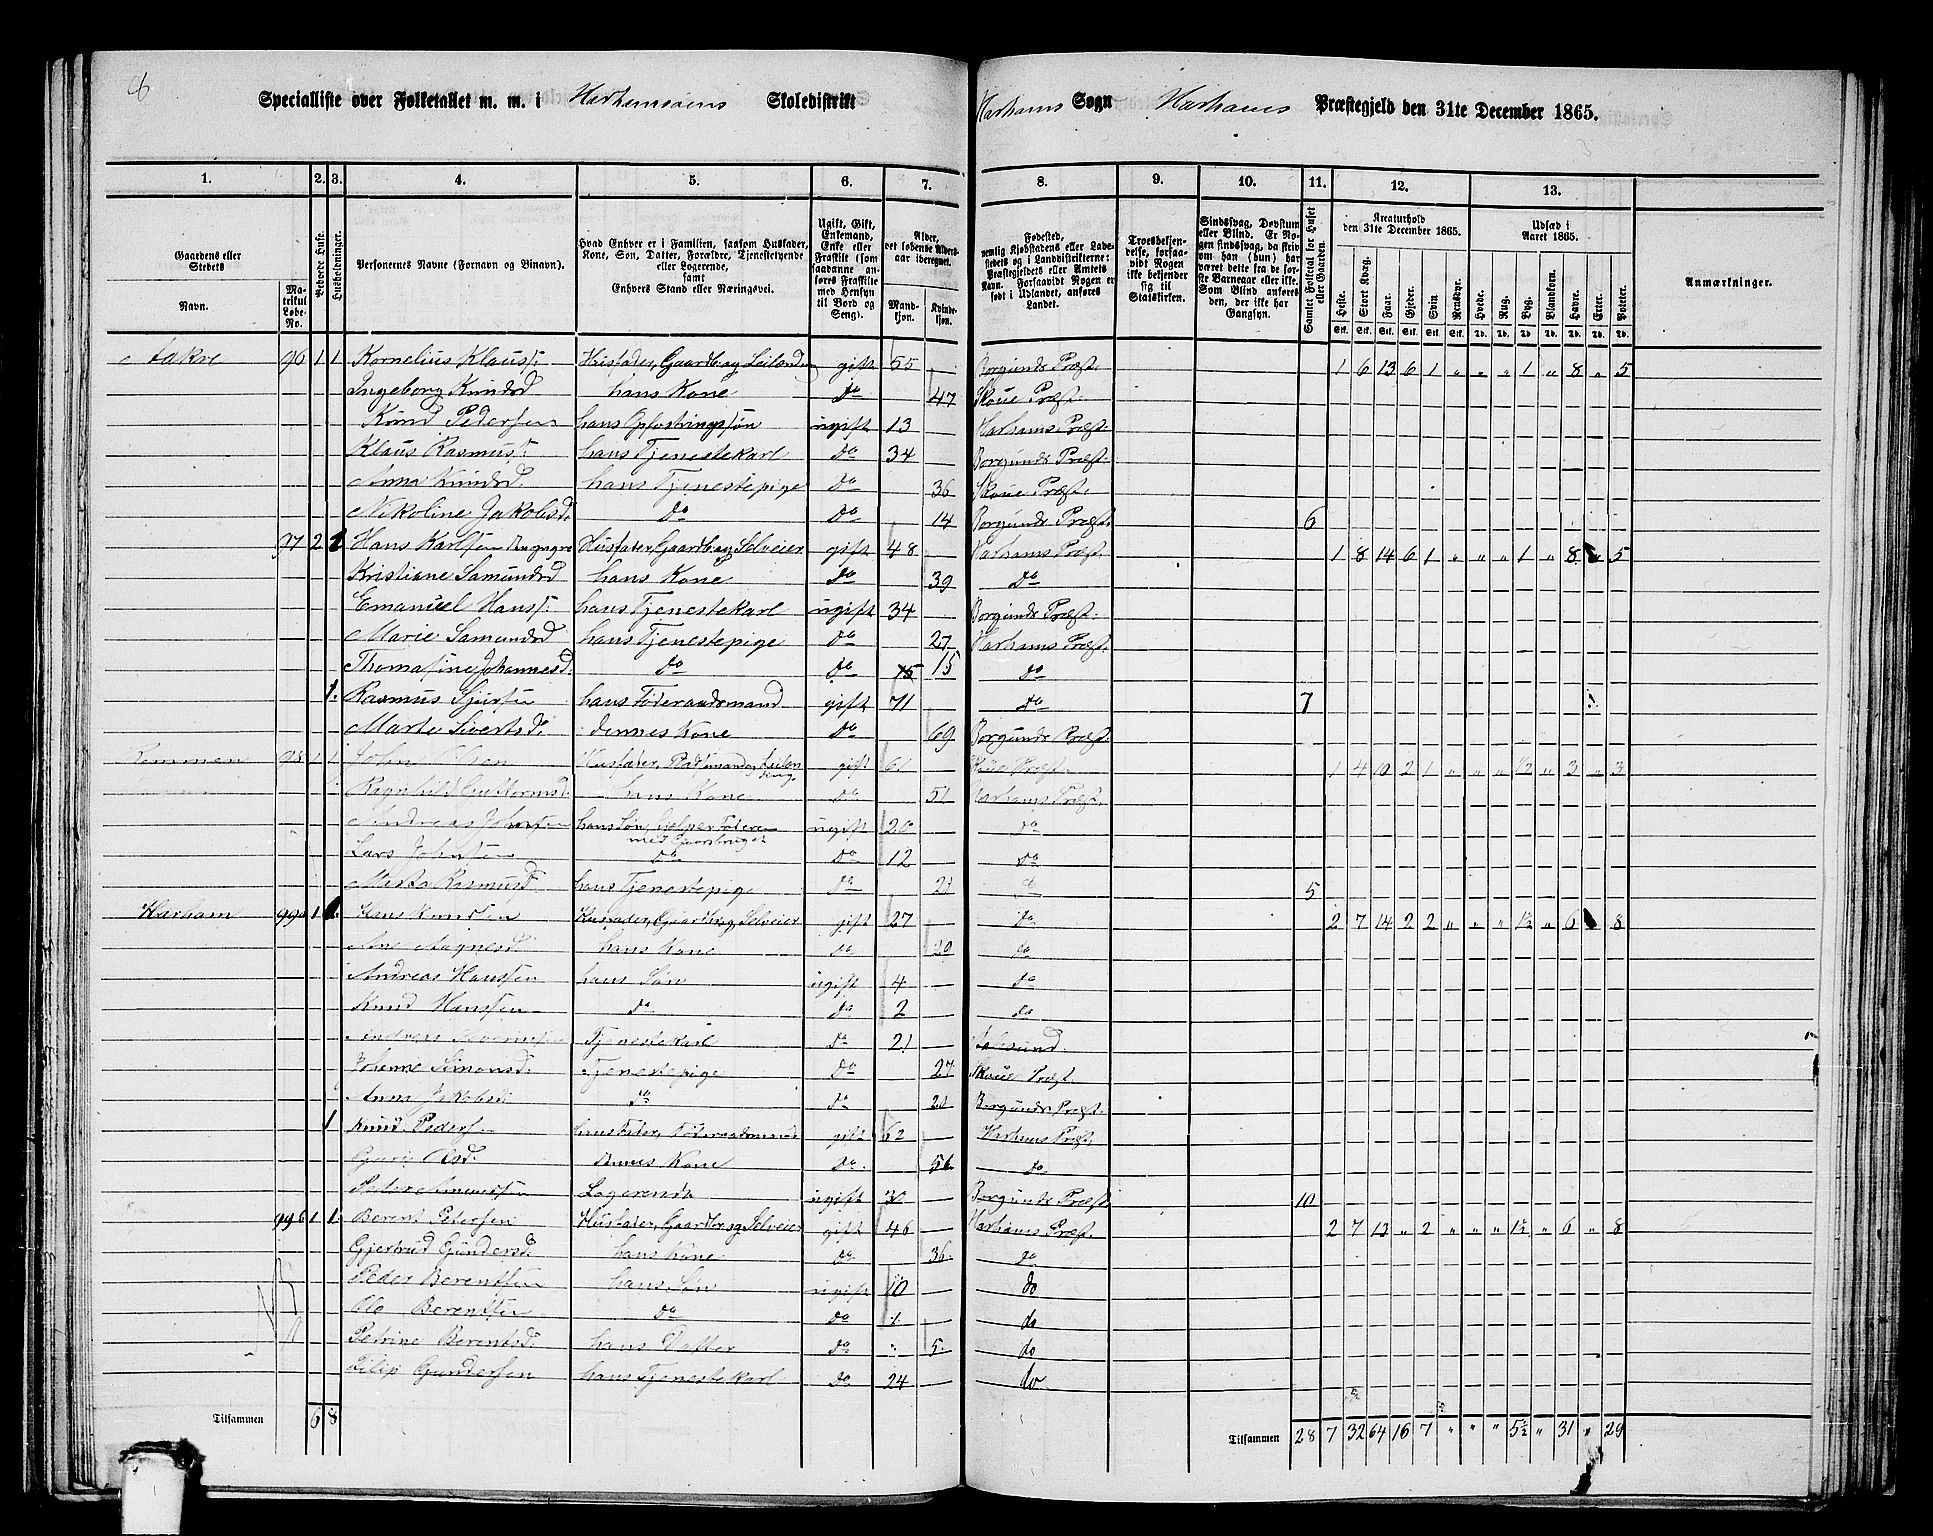 Specialliste over Folketallet m. m. i Harhamsøens Skoledistrikt Harhams Sogn Harhams Præstegjeld den 31te December 1865.
1. 2. 3. 4. 5. 6. 7. 8. 9. 10. 11. 12. 13.
Gaardens eller Stedets Navn. Matrikul Løbe-No. Beboede Huse. Husholdninger. Personernes Navne (Fornavn og Binavn). Hvad Enhver er i Familien, saasom Husfader, Kone, Søn, Datter, Forældre, Tjenestetyende eller Logerende, samt Enhvers Stand eller Næringsvei. Ugift, Gift, Enkemand, Enke eller Fraskilt (som saadanne anføres Fraskilte med Hensyn til Bord og Seng). Alder, det løbende Alders-aar iberegnet. Mandkjøn. Kvindekjøn. Fødested, nemlig Kjøbstadens eller Ladestedets og i Landdistrikterne: Præstegjeldets eller Amtets Navn. Forsaavidt Nogen er født i Udlandet, anføres Landet. Troesbekjendelse, forsaavidt Nogen ikke bekjender sig til Statskirken. Sindssvag, Døvstum eller Blind. Er Nogen sindssvag, da skrives om han (hun) har været dette fra de første Barneaar eller ikke. Som Blind anføres den, der ikke har Gangsyn. Samlet Folketal for Huset eller Gaarden. Kreaturhold den 31te December 1865. Udsæd i Aaret 1865. Anmærkninger.
Heste. Stort Kvæg. Faar. Gjeder. Svin. Rensdyr. Hvede. Rug. Byg. Blandkorn. Havre. Erter. Poteter.
Aakre 96 1 1 Kornelius Klaus: Husfader, Gaardb og Leilending gift 55 Borgunds Præst. 1 6 13 6 1 " " " 1 " 8 " 5
Ingeborg Knudsd hans Kone do 47 Skoue Præst.
Knud Pedersen hans Opfostringssøn ugift 13 Harhams Præst
Klaus Rasmus: hans Tjenestekarl do 34 Borgunds Præst.
Anna Knudsd. hans Tjenestepige do 36 Skoue Præst.
Nikoline Jakobsd. do do 14 Borgunds Præst. 6
97 2 1 Hans Karlsen Husfader, Gaardb og Selveier gift 48 Harhams Præst. 1 8 14 6 1 " " " 1 " 8 " 5
Kristiane Samundsd hans Kone do 39 do
Emanuel Hans: hans Tjenestekarl ugift 34 Borgunds Præst.
Marie Samundsd hans Tjenestepige do 27 Harhams Præst.
Thomasine Johannesd. do do 15 15 do
1. Rasmus Sjursen hans Føderaadsmand gift 71 do 7
Marte Sivertsd. dennes Kone do 69 Borgunds Præst.
Remmen 98 1 1. John Olsen Husfader, og Leilending gift 61 Skoue Præst. 1 4 10 2 1 " " " 1/2 " 3 " 3
Ragnhild Guttormsd. hans Kone do 51 Harhams Præst.
Andreas Johnsen hans Søn, hjelper Føderen med Gaardbruget ugift 20 do
Lars Johnsen do do 12 do
Marta Rasmusd. hans Tjenestepige do 21 do 5
Harham 99a 1 1. Hans Knudsen Husfader, Gaardbr og Selveier gift 27 do 2 7 14 2 2 " " " 1 1/2 " 6 8
Ane Magnesd. hans Kone do 29 do
Andreas Hanssen hans Søn ugift 4 do
Knud Hanssen do do 2 do
Andreas Tjenestekarl do 21 Aalesund.
Johanne Simonsd. Tjenestepige do 27 Skoue Præst.
Anna Jakobsd: do do 20 Borgunds Præst.
1 Knud Peders: hans Fader, Føderaadsmand gift 62 Harhams Præst.
Guri Olsd. dennes Kone do. 56 do
Peder Logerende ugift 30 Borgunds Præst. 10
99b 1 1. Berent Petersen Husfader, Gaardbr og Selveier gift 46 Harhams Præst. 2 7 13 " 2 " " " 1 1/2 " 6 " 8
Gjertrud Gundersd. hans Kone do 36. do
Peder Berentsen hans Søn ugift 10 do
Ole Berentsen do do 1 do
Petrine Berentsd. hans Datter do " 5. do
Filip Gundersen hans Tjenestekarl do 24 do.
Tilsammen 6 8 Tilsammen 28 7 32 64 16 7 " " " 5 1/2 " 31 " 29